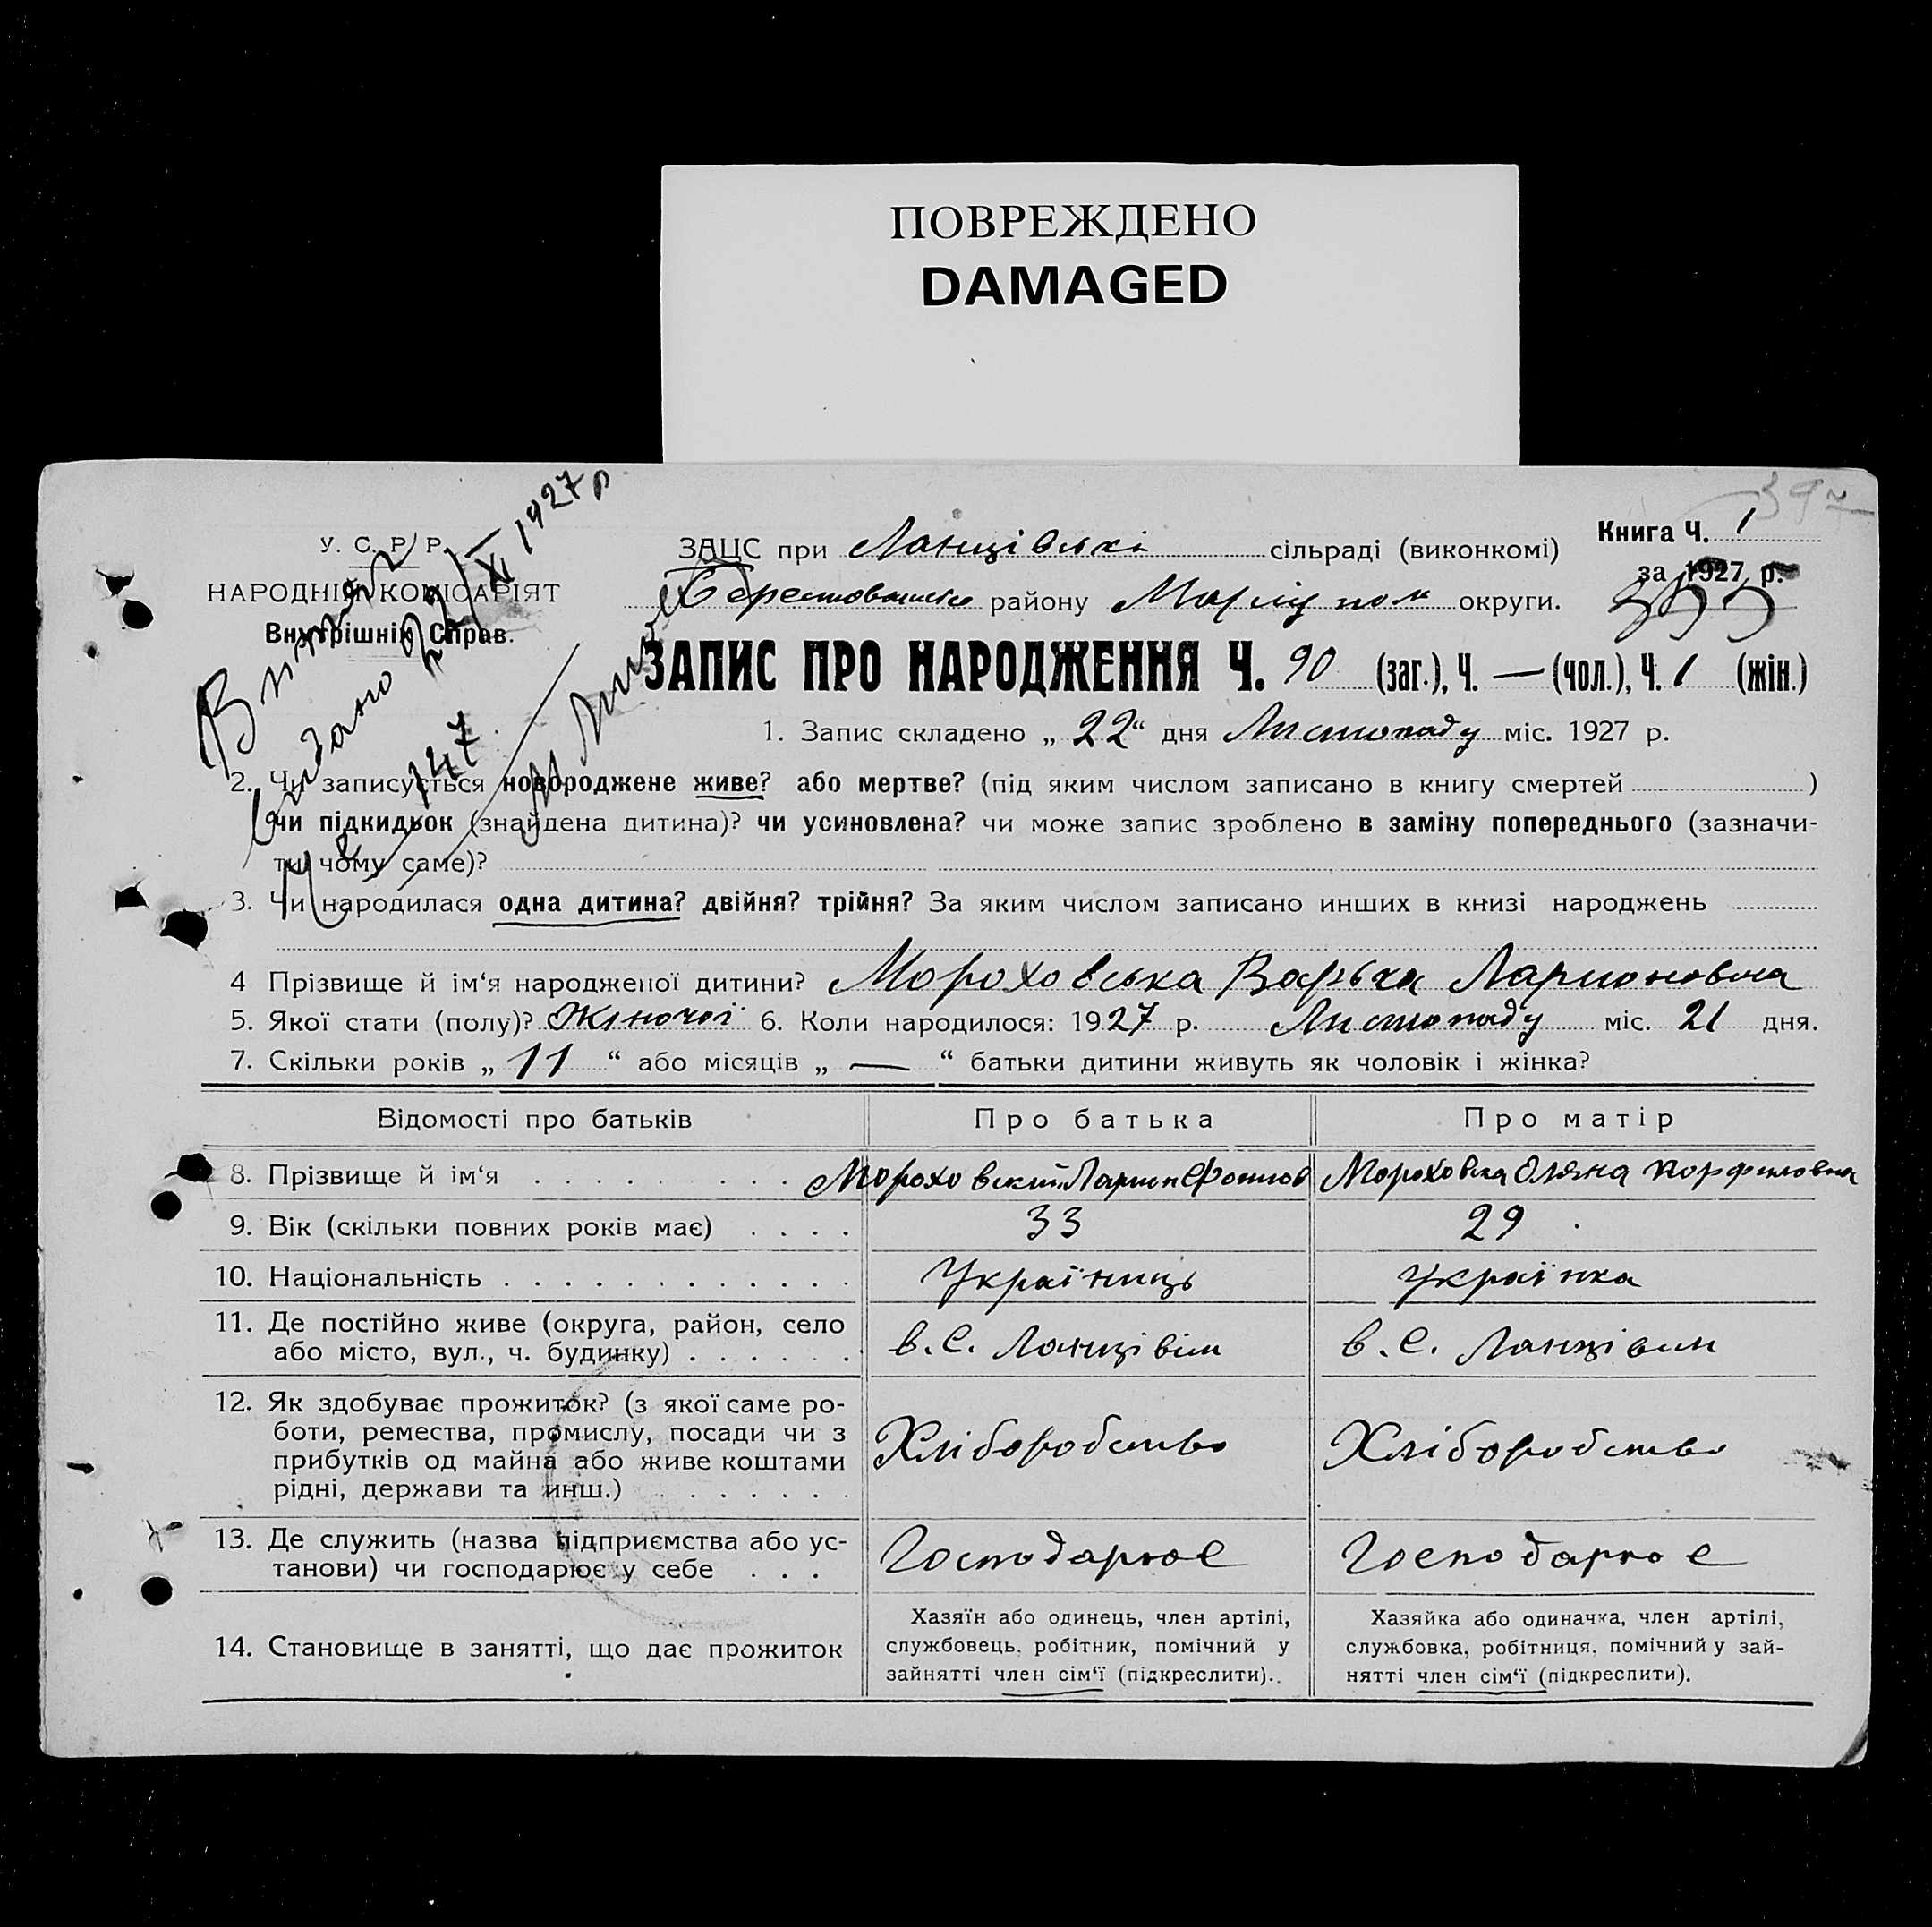 ПОВРЕЖДЕНО
DAMAGED
397
У. С. Р. Р.
НАРОДНІЙ КОМІСАРІЯТ
Внутрішніх Справ.
Витяг
видано 22/XI 1927 р
№ 147
ЗАЦС при Ланцівські сільраді (виконкомі)
району Маріупол округи.
Книга Ч. 1
за 1927 р.
355
ЗАПИС ПРО НАРОДЖЕННЯ Ч. 90 (заг.), Ч. — (чол.), Ч. 1 (жін.)
1. Запис складено „ 22 “ дня Листопаду міс. 1927 р.
2. Чи записується новороджене живе? або мертве? (під яким числом записано в книгу смертей )
чи підкидьок (знайдена дитина)? чи усиновлена? чи може запис зроблено в заміну попереднього (зазначи-
ти чому саме)?
3. Чи народилася одна дитина? двійня? трійня? За яким числом записано инших в книзі народжень
4 Прізвище й ім‘я народженої дитини? Мороховська Варька Ларионовна
5. Якої стати (полу)? Жіночої 6. Коли народилося: 1927 р. Листопаду міс. 21 дня.
7. Скільки років „ 11 “ або місяців „ — “ батьки дитини живуть як чоловік і жінка?
Відомості про батьків Про батька Про матір
8. Прізвище й ім‘я Мороховский Ларион Мороховска Оляна Порфиловна
9. Вік (скільки повних років має) 33 29
10. Національність Україниць Українка
11. Де постійно живе (округа, район, село
або місто, вул., ч. будинку) в. С. Ланцівим в. С. Ланцівим
12. Як здобуває прожиток? (з якої саме ро-
боти, ремества, промислу, посади чи з
прибутків од майна або живе коштами
рідні, держави та инш.) Хліборобство Хліборобство
13. Де служить (назва підприємства або ус-
танови) чи господарює у себе Господарює Господарює
14. Становище в занятті, що дає прожиток
Хазяїн або одинець, член артілі,
службовець, робітник, помічний у
зайнятті член сім‘ї (підкреслити).
Хазяйка або одиначка, член артілі,
службовка, робітниця, помічний у зай-
нятті член сім‘ї (підкреслити).